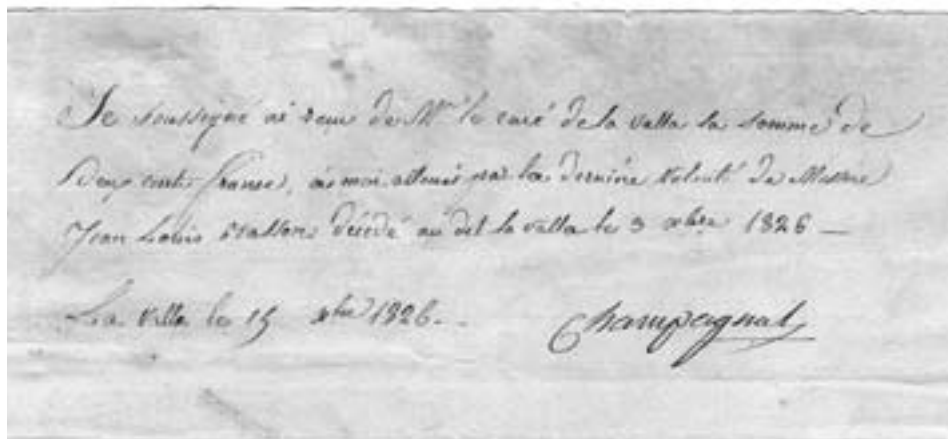 Je soussigné ai reçu de Mr le curé de la valla la somme de
Deux cents francs, à moi alloués par la dernière volonté de Messire
Jean Louis décédé au dit la valla le 3 xbre 1826 —
La valla le 15 xbre 1826. —
Champagnat